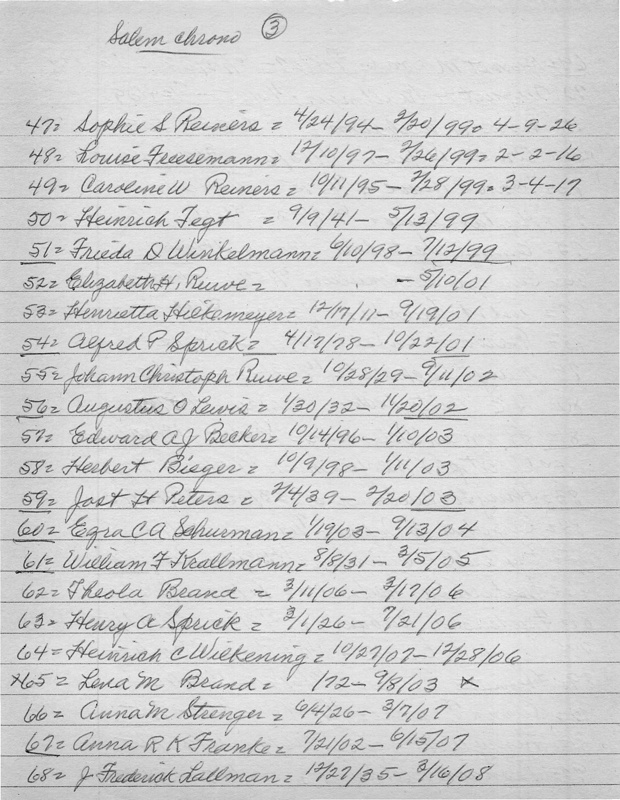 Salem chrono ③
47= Sophie S Reiners = 4/24/94 - 2/20/99= 4-9-26
48= Louise Freesemann= 12/10/97 - 2/26/99= 2-2-16
49= Caroline W Reiners = 10/11/95 - 2/28/99= 3-4-17
50= Heinrich Tegt = 9/9/41 - 5/13/99
51= Frieda D Winkelmann= 6/10/98 - 7/12/99
52= Elizabeth H. Ruwe = - 5/10/01
53= Henrietta Hickemeyer= 12/17/11 - 9/19/01
54= Alfred P Sprick = 4/17/78 - 10/22/01
55= Johann Christoph Ruwe = 10/28/29 - 9/11/02
56= Augustus O Lewis = 1/30/32 - 11/20/02
57= Edward A J Becker= 10/14/96 - 1/10/03
58= Herbert Bieger = 10/9/98 - 1/11/03
59= Jost H Peters = 2/4/39 - 2/20/03
60= Ezra C A Schurman= 1/19/03 - 9/13/04
61= William F Krallmann= 8/8/31 - 3/5/05
62= Theola Brand = 3/11/06 - 3/17/06
63= Henry A Sprick = 3/1/26 - 7/21/06
64= Heinrich C Wilkening = 10/27/07 - 12/28/06
*65= Lena M Brand = 172 - 9/8/03 *
66= Anna M Strenger = 6/4/26 - 3/7/07
67= Anna R K Franke = 7/21/02 - 6/15/07
68= J Frederick Lallman = 12/27/35 - 3/16/08